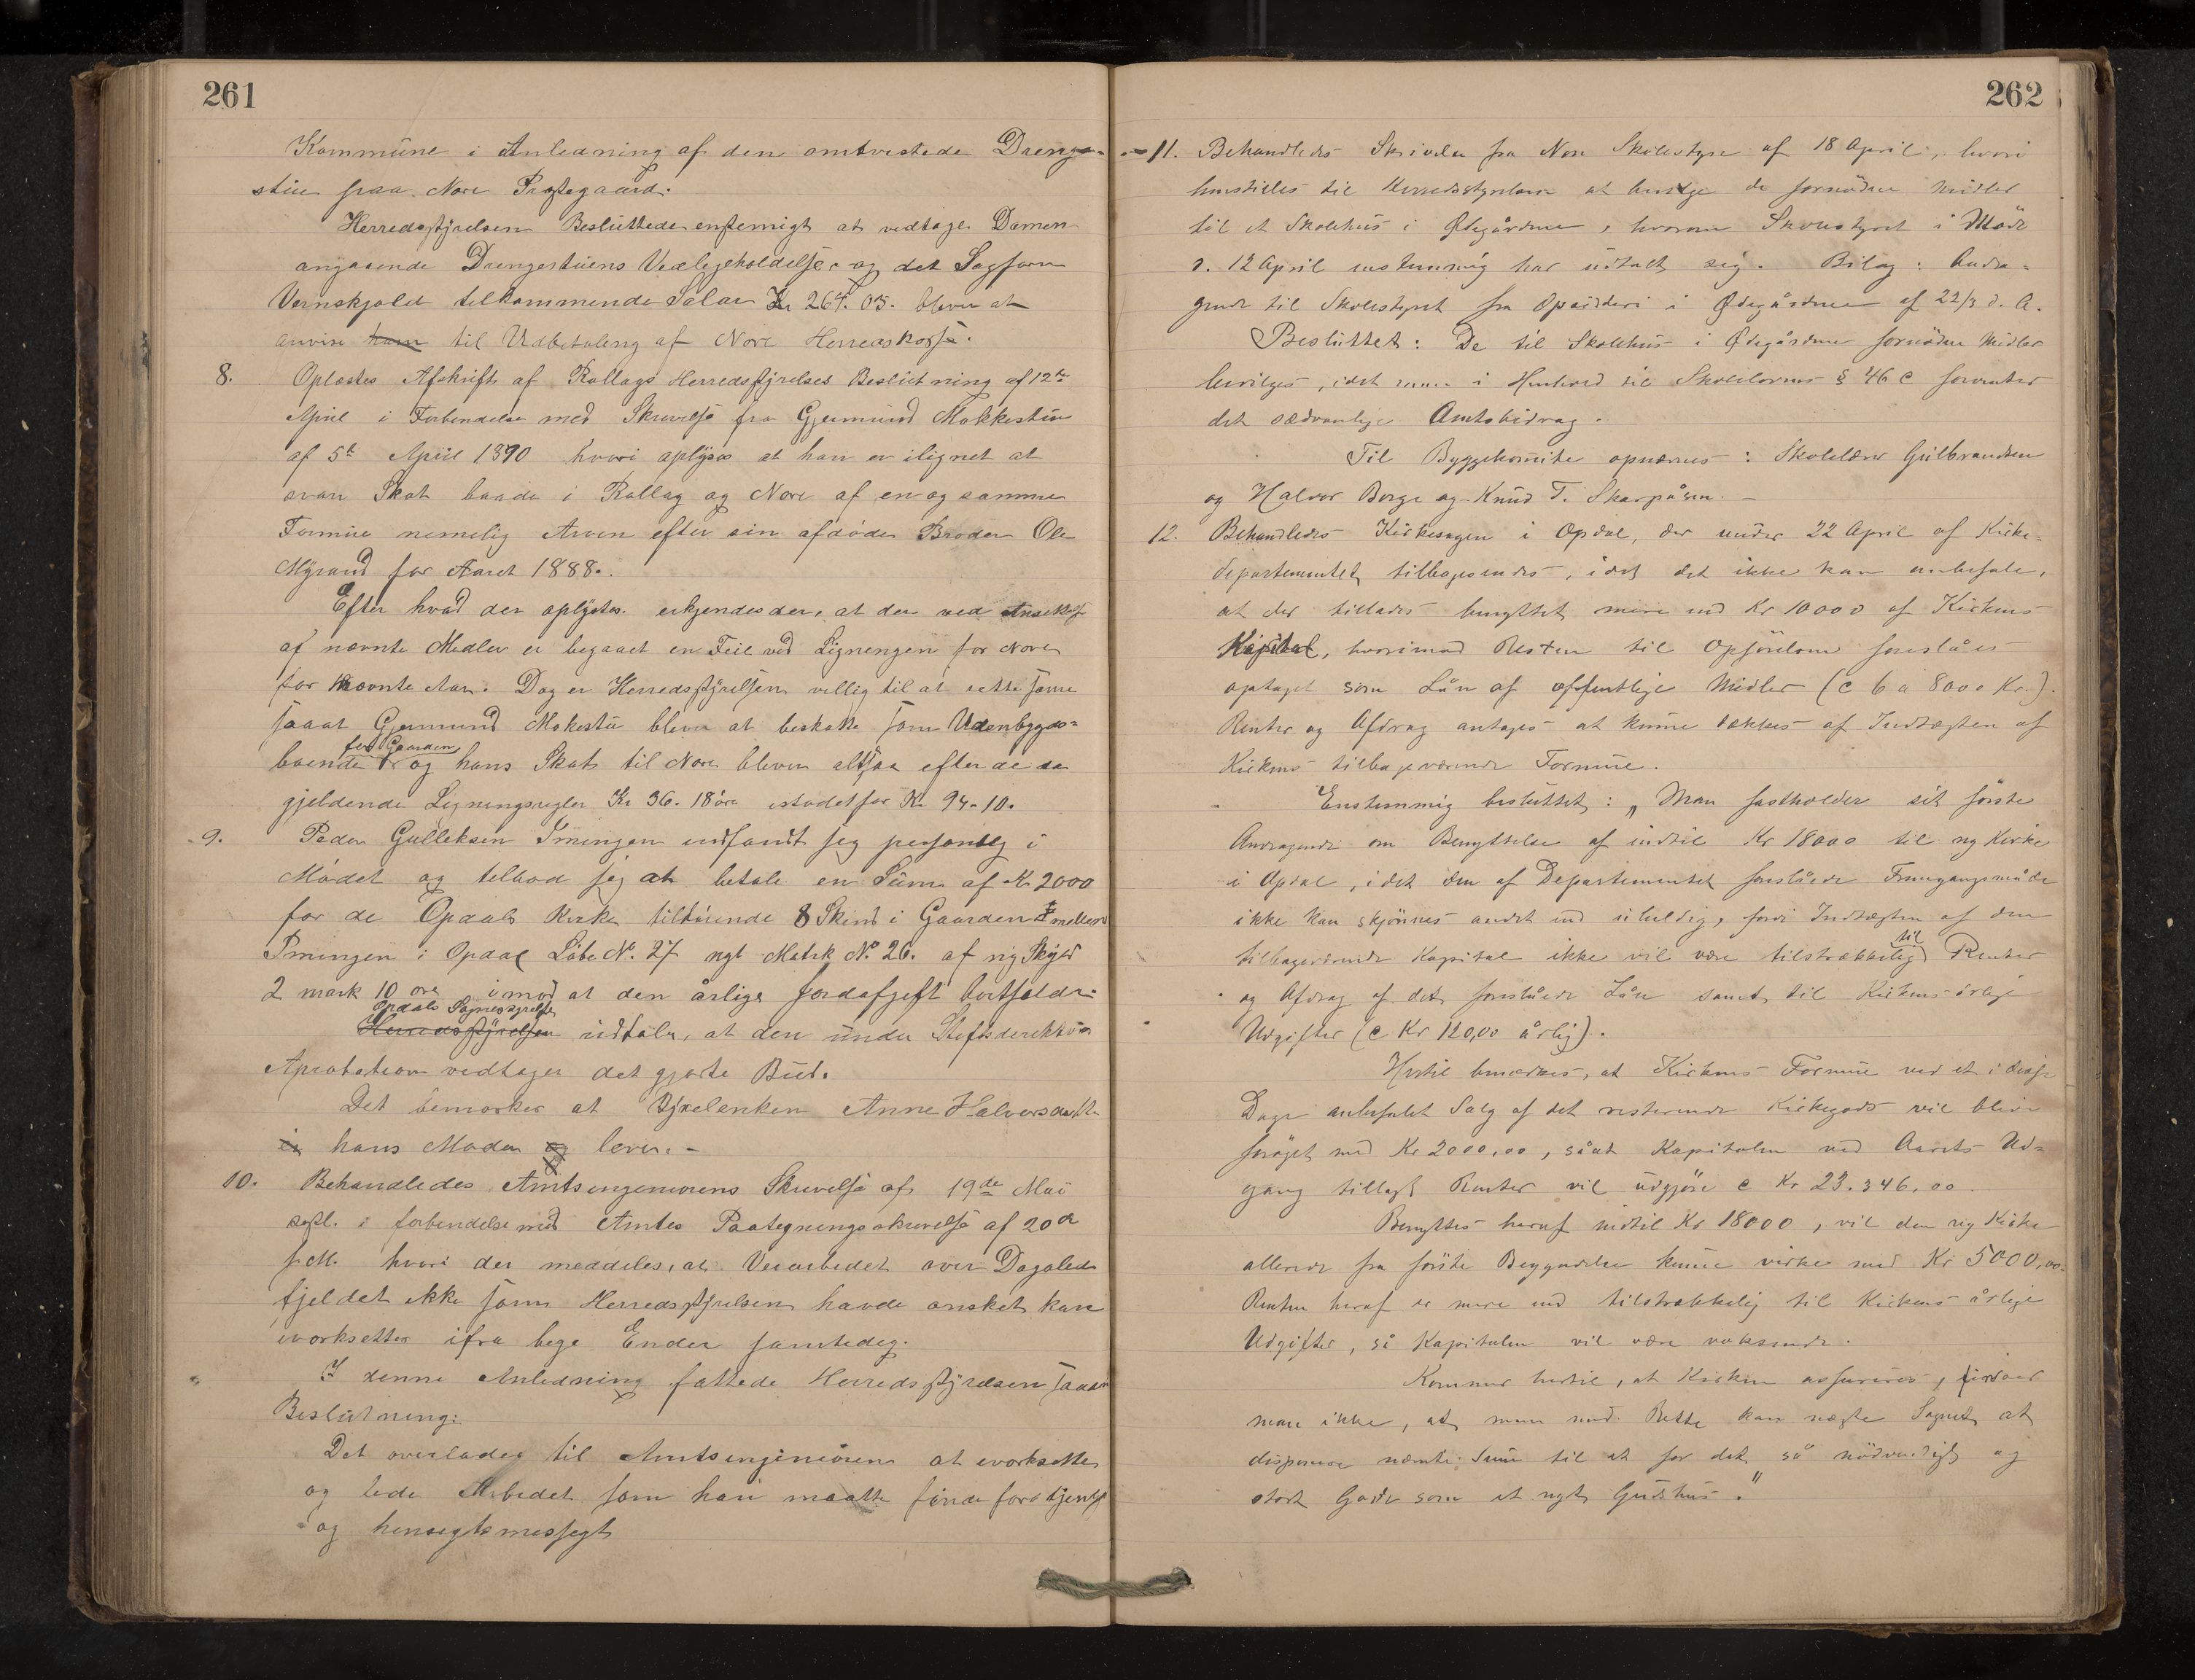 261
Kommune i Anledning af den omtvistede Drenge-
stue paa Nore Præstegaard.
Herredsstyrelsen Besluttede enstemigt at vedtage Dommen
angaaende Drengestuens Vedligeholdelse, og det Sagfører
Vernskjold tilkommende Salær Kr 264.05. bliver at
anvise ham til Udbetaling af Nore Herredskasse.
8. Oplæstes Afskrift af Rollags Herredsstyrelses Beslutning af 12te
April i Forbindelse med Skrivelse fra Gjermund Mokkestue
af 5te April 1890 hvori oplyses at han er ilignet at
svare Skat baade i Rollag og Nore af en og samme
Formue nemelig Arven efter sin afdøde Broder Ole
Myrand for Aaret 1888.
Efter hvad der oplystes erkjendes der, at der ved Ansættelse
af nævnte Midler er begaaet en Feil ved Ligningen for Nore
for nævnte Aar. Dog er Herredsstyrelsen villig til at rette samme
saaat Gjermund Mokestu bliver at beskatte som Udenbygds-
boende for Gaarden og hans Skat til Nore bliver altsaa efter de da
gjeldende Ligningsregler Kr 36.18 øre istedetfor Kr 94-10.
9. Peder Gulleksen Imingen indfandt sig personlig i
Mødet og tilbød sig at betale en Sum af Kr 2000
for de Opdals Kirke tilhørende 8 Skind i Gaarden mellem
Imingen i Opdal Løbe No. 27 nyt Matrk No. 26. af ny Skyld
2 mark 10 øre imod at den årlige Jordafgift bortfalder
Opdals Sognestyrelse
Herredsstyrelsen udtaler, at den under Stiftsdirektions
Aprobation vedtager det gjorte Bud.
Det bemærkes at Bygselenken Anne Halvorsdatter
er hans Moder og lever. -
10. Behandledes Amtsingeniørens Skrivelse af 19de Mai
sidstl. i forbindelse med Amtets Paategningsskrivelse af 20de
s.M. hvori der meddeles, at Veiarbeidet over Dagalid-
fjeldet ikke som Herredsstyrelsen havde ønsket kan
iværksettes ifra bege Ender samtidig.
I denne Anledning fattede Herredsstyrelsen saadan
Beslutning:
Det overlades til Amtsingeniøren at iverksette
og lede Arbeidet som han maatte finde fordtjenligt
og hensigtsmessigt
262
11. Behandledes Skrivelse fra Nore Skolestyre af 18 April, hvori
henstilles til Herredsstyrelsen at bevilge de fornødne Midler
til et Skolehus i Ødegårdene, hvorom Skolestyret i Møde
d. 12 April enstemmig har udtalt sig. Bilag: Andra-
gende til Skolestyret fra Opsidderi i Ødegårdene af 22/3 d. A.
Besluttet: De til Skolehus i Ødegårdene fornødne Midler
bevilges, idet man i Henhold til Skolelovens § 46 c forventer
det sædvanlige Amtsbidrag.
Til Byggekomite opnævnes: Skolelærer Gulbrandsen
og Halvor Borge og Knud T. Skarpåsen. -
12. Behandledes Kirkesagen i Opdal, der under 22 April af Kirke-
departementet tilbagesendes, idet det ikke kan anbefale,
at der tillades benyttet mere end Kr 10000 af Kirkens
Kapital, hvorimod Resten til Opførelsen foreslåes
optaget som Lån af offentlige Midler (c 6 a 8000 Kr.).
Renter og Afdrag antages at kunne dækkes af Indtægten af
Kirkens tilbageværende Formue.
Enstemmig besluttet: „Man fastholder sit første
Andragende om Benyttelse af indtil Kr 18000 til ny Kirke
i Opdal, idet den af Departementet foreslåede Fremgangsmåde
ikke kan skjønnes andet end uheldig, fordi Indtægten af den
tilbageværende Kapital ikke vil være tilstrækkelig til Renter
og Afdrag af det foreslåede Lån samt til Kirkens årlige
Udgifter (c Kr 120,00 årlig).
Hertil bemærkes, at Kirkens Formue ved et i disse
Dage anbefalet Salg af det resterende Kirkegods vil blive
forøget med Kr 2000,00, såat Kapitalen ved Aarets Ud-
gang tillagt Renter vil udgjøre c Kr 23.346,00.
Benyttes heraf indtil Kr 18000, vil den ny Kirke
allerede fra første Begyndelse kunne virke med Kr 5000,00.
Renten heraf er mere end tilstrækkelig til Kirkens årlige
Udgifter, så Kapitalen vil være voksende.
Kommer hertil, at Kirken assureres, indser
man ikke, at man med Rette kan nægte Sognet at
disponere nævnte Sum til et for det så nødvendigt og
stort Gode som et nyt Gudshus."